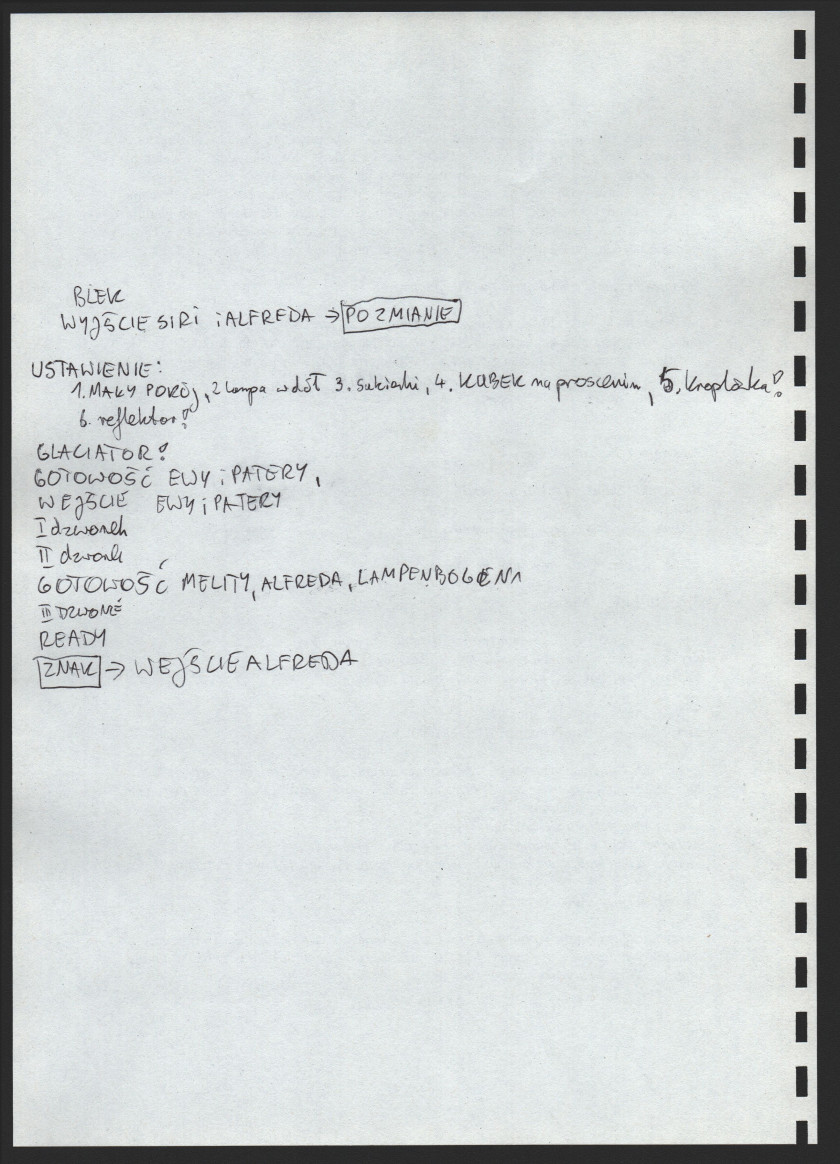 BLEK
WYJŚCIE SIRI i ALFREDA → PO ZMIANIE
USTAWIENIE:
1. MAŁY POKÓJ, 2 lampa w dół 3. Sukienki, 4. KUBEK na proscenium, 5. Kroplówka!
6. reflektor!
GLACIATOR!
GOTOWOŚĆ EWY i PATERY,
WEJŚCIE EWY i PATERY
I dzwonek
II dzwonek
GOTOWOŚĆ MELITY, ALFREDA, LAMPENBOGENA
III DZWONEK
READY
ZNAK → WEJŚCIE ALFREDA